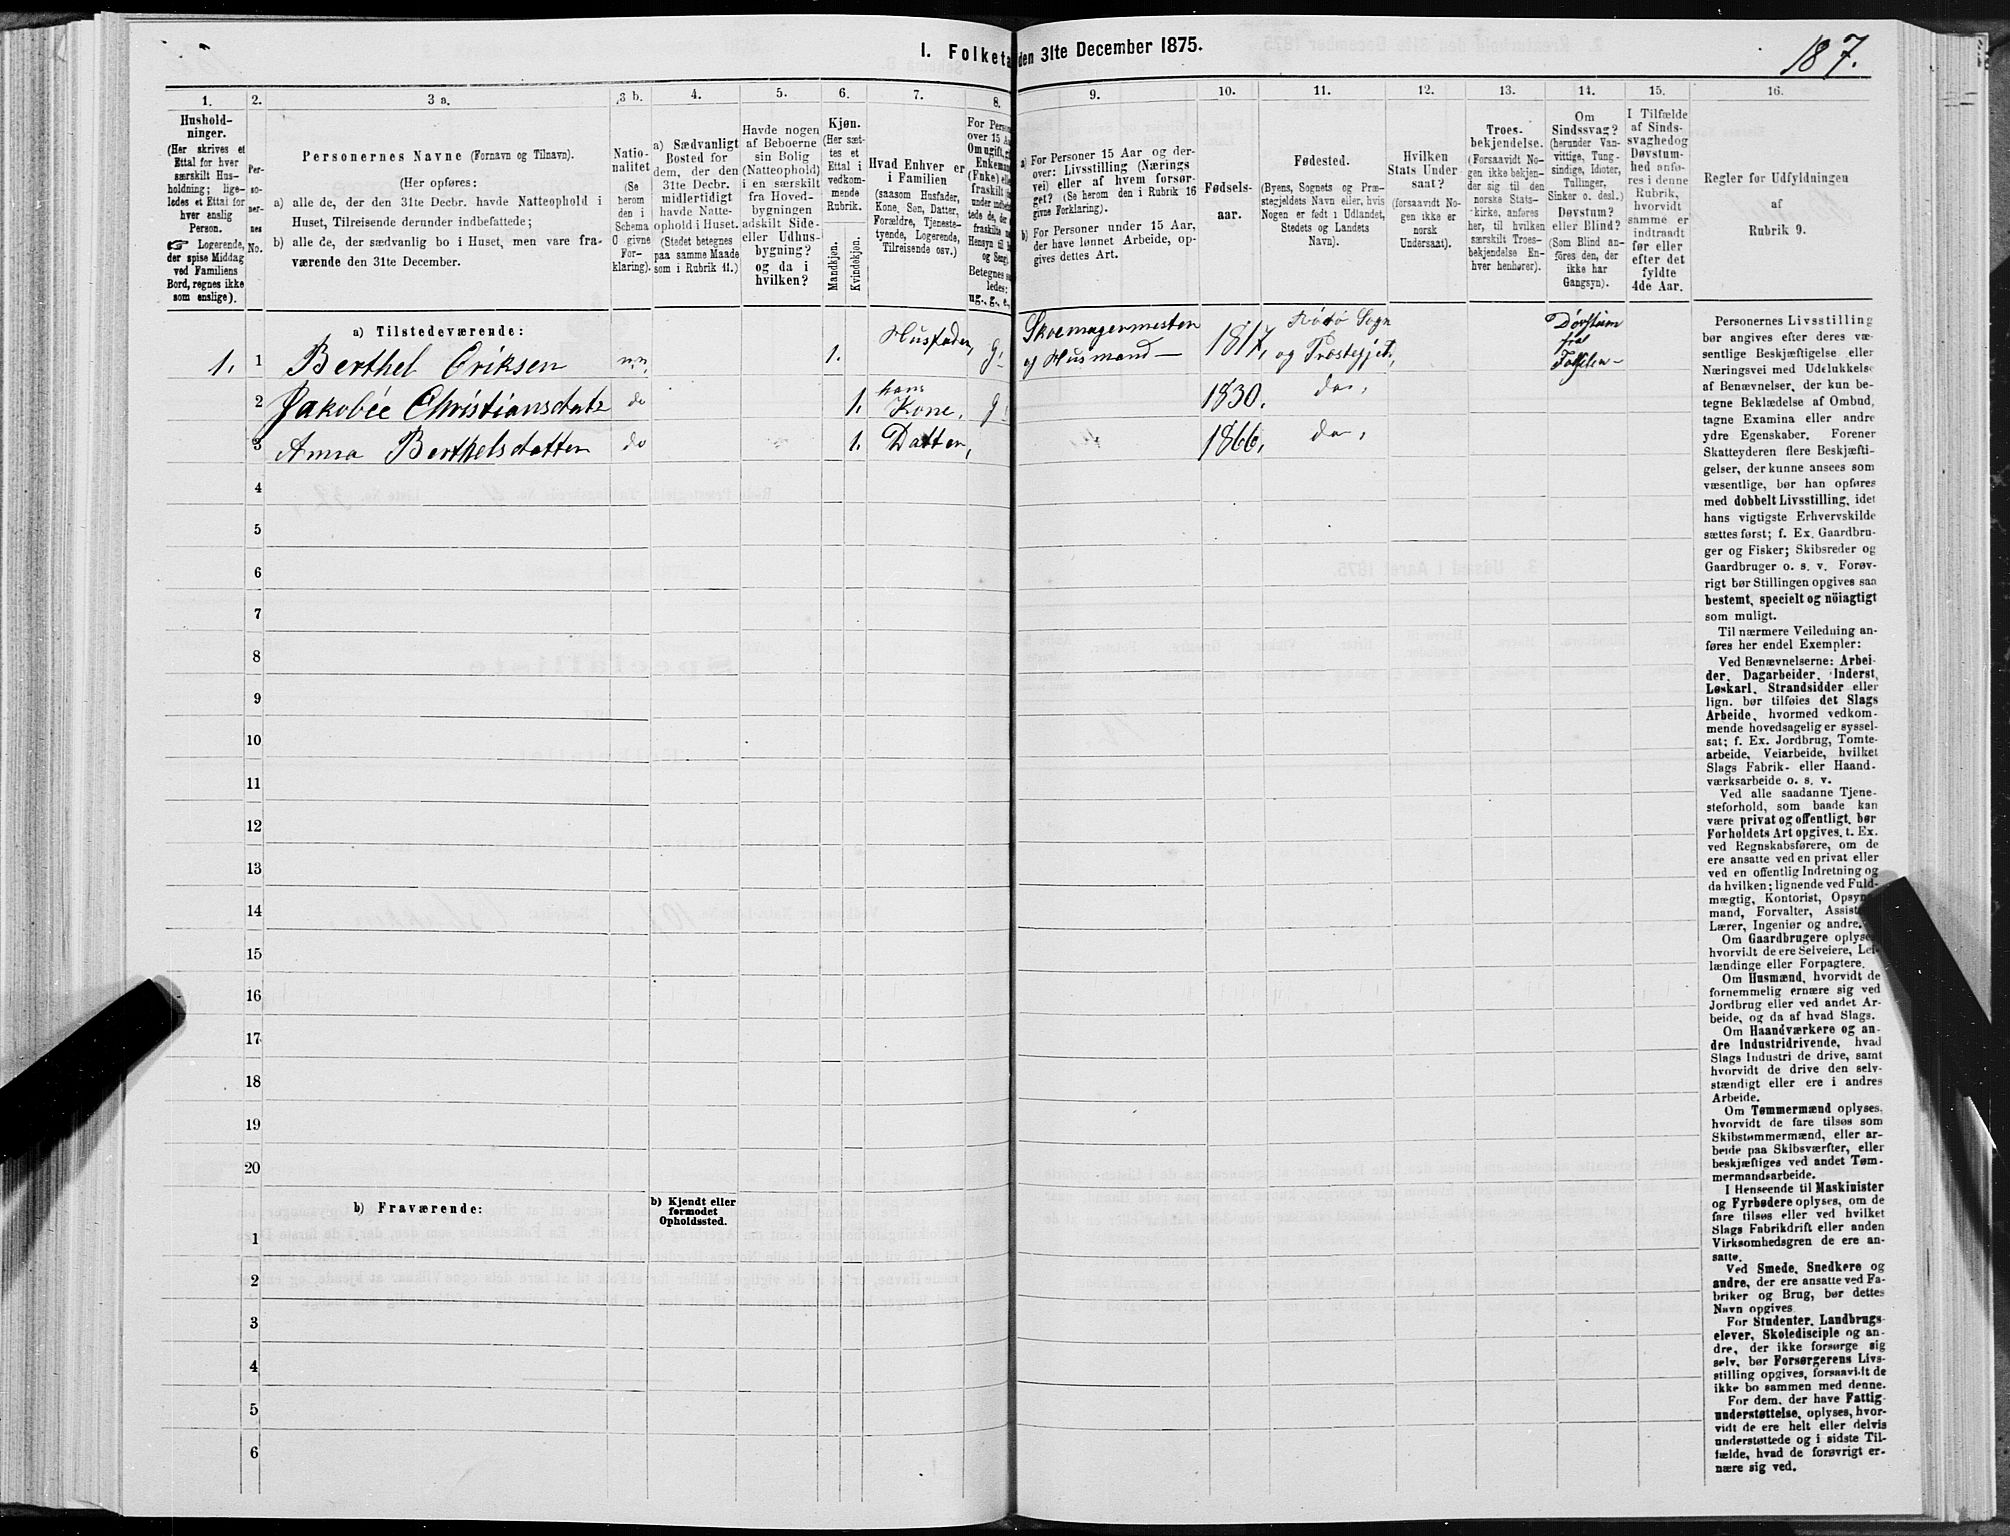 I. Folketa den 31te December 1875.
187.
1.
2.
3 a.
3 b.
4.
5.
6.
7.
8.
9.
10.
11.
12.
13.
14.
15.
16.
Hushold-
ninger.
(Her skrives et
Ettal for hver
særskilt Hus-
holdning; lige-
ledes et Ettal for
hver enslig
Person.
☞ Logerende,
der spise Middag
ved Familiens
Bord, regnes ikke
som enslige).
Per-
so-
ner-
nes
No.
Personernes Navne (Fornavn og Tilnavn).
(Her opføres:
a) alle de, der den 31te Decbr. havde Natteophold i
Huset, Tilreisende derunder indbefattede;
b) alle de, der sædvanlig bo i Huset, men vare fra-
værende den 31te December.
Natio-
nalitet
(Se
herom
den i
Schema
O givne
For-
klaring).
a) Sædvanligt
Bosted for
dem, der den
31te Decbr.
midlertidigt
havde Natte-
ophold i Huset.
(Stedet betegnes
paa samme Maade
som i Rubrik 11.)
Havde nogen
af Beboerne
sin Bolig
(Natteophold)
i en særskilt
fra Hoved-
bygningen
adskilt Side-
eller Udhus-
bygning?
og da i
hvilken?
Kjøn.
(Her sæt-
tes et
Ettal i
vedkom-
mende
Rubrik.
Mandkjøn.
Kvindekjøn.
Hvad Enhver er
i Familien
(saasom Husfader,
Kone, Søn, Datter,
Forældre, Tjeneste-
tyende, Logerende,
Tilreisende osv.)
For Perso
over 15 A
Om ugift, gi
Enkemand
(Enke) elle
fraskilt i
under indbe
tede de, der
fraskilte m
Hensyn til b
og Seng).
Betegnes sa
ledes:
ug., g., e.,
a) For Personer 15 Aar og der-
over: Livsstilling (Nærings
vei) eller af hvem forsør-
get? (Se herom den i Rubrik 16
givne Forklaring).
b) For Personer under 15 Aar,
der have lønnet Arbeide, op-
gives dettes Art.
Fødsels-
aar.
Fødested.
(Byens, Sognets og Præ-
stegjeldets Navn eller, hvis
Nogen er født i Udlandet,
Stedets og Landets
Navn).
Hvilken
Stats Under
saat?
(forsaavidt No-
gen ikke er
norsk
Undersaat).
Troes-
bekjendelse.
(Forsaavidt No-
gen ikke bekjen-
der sig til den
norske Stats-
kirke, anføres
her, til hvilken
særskilt Troes-
bekjendelse En-
hver henhører).
Om
Sindssvag?
(herunder Van-
vittige, Tung-
sindige, Idioter,
Tullinger,
Sinker o. desl.)
Døvstum?
eller Blind?
(Som Blind an-
føres den, der
ikke har
Gangsyn).
I Tilfælde
af Sinds-
svaghedog
Døvstum-
hed anfø-
res i denne
Rubrik,
hvorvidt
samme er
indtraadt
før eller
efter det
fyldte
4de Aar.
Regler for Udfyldningen
af
Rubrik 9.
a) Tilstedeværende:
1. 1 Berthel Eriksen n.n. 1. Husfader, g. Skoemagermester og Husmand— 1817, Rödö Sogn og Præstegjeld, Døvstum fra Fødslen—
2 Jakobée Christiansdatr do 1. hans Kone, g. 1830. do,
3 Anna Berthelsdatter do 1. Datter, 1866, do,
4
5
6
7
8
9
10
11
12
13
14
15
16
17
18
19
20
b) Fraværende:
b) Kjendt eller
formodet
Opholdssted.
1
2
3
4
5
6
Personernes Livsstilling
bør angives efter deres væ-
sentlige Beskjæftigelse eller
Næringsvei med Udelukkelse
af Benævnelser, der kun be-
tegne Beklædelse af Ombud,
tagne Examina eller andre
ydre Egenskaber. Forener
Skatteyderen flere Beskjæfti-
gelser, der kunne ansees som
væsentlige, bør han opføres
med dobbelt Livsstilling, idet
hans vigtigste Erhvervskilde
sættes først; f. Ex. Gaardbru-
ger og Fisker; Skibsreder og
Gaardbruger o. s. v. Forøv-
rigt bør Stillingen opgives saa
bestemt, specielt og nöiagtigt
som muligt.
Til nærmere Veiledning an-
føres her endel Exempler:
Ved Benævnelserne: Arbei-
der, Dagarbeider, Inderst,
Løskarl, Strandsidder eller
lign. bør tilføies det Slags
Arbeide, hvormed vedkom-
mende hovedsagelig er syssel-
sat; f. Ex. Jordbrug, Tomte-
arbeide, Veiarbeide, hvilket
Slags Fabrik- eller Haand-
værksarbeide o. s. v.
Ved alle saadanne Tjene-
steforhold, som baade kan
være privat og offentligt, bør
Forholdets Art opgives, t. Ex.
ved Regnskabsførere, om de
ere ansatte ved en privat eller
ved en offentlig Indretning og
da hvilken; lignende ved Fuld-
mægtig, Kontorist, Opsyns-
mand, Forvalter, Assist
Lærer, Ingeniør og andre.
Om Gaardbrugere oplyses
hvorvidt de ere Selveiere, Lei-
lændinge eller Forpagtere.
Om Husmænd, hvorvidt de
fornemmelig ernære sig ved
Jordbrug eller ved andet Ar-
beide, og da af hvad Slags.
Om Haandværkere og an-
dre Industridrivende, hvad
Slags Industri de drive, samt
hvorvidt de drive den selv-
stændigt eller ere i andres
Arbeide.
Om Tømmermænd oplyses,
hvorvidt de fare tilsøs som
Skibstømmermænd, eller ar-
beide paa Skibsværfter, eller
beskjæftiges ved andet Tøm-
mermandsarbeide.
I Henseende til Maskinister
og Fyrbødere oplyses, om de
fare tilsøs eller ved hvilket
Slags Fabrikdrift eller anden
Virksomhedsgren de ere an-
satte.
Ved Smede, Snedkere og
andre, der ere ansatte ved Fa-
briker og Brug, bør dettes
Navn opgives
For Studenter, Landbrugs-
elever, Skoledisciple og an-
dre, der ikke forsørge sig
selv, bør Forsørgerens Livs-
stilling opgives, forsaavidt de
ikke bo sammen med denne.
For dem, der have Fattig-
understøttelse, oplyses, hvor-
vidt de ere helt eller delvis
understøttede og i sidste Til-
fælde, hvad de forøvrigt er-
nære sig ved.